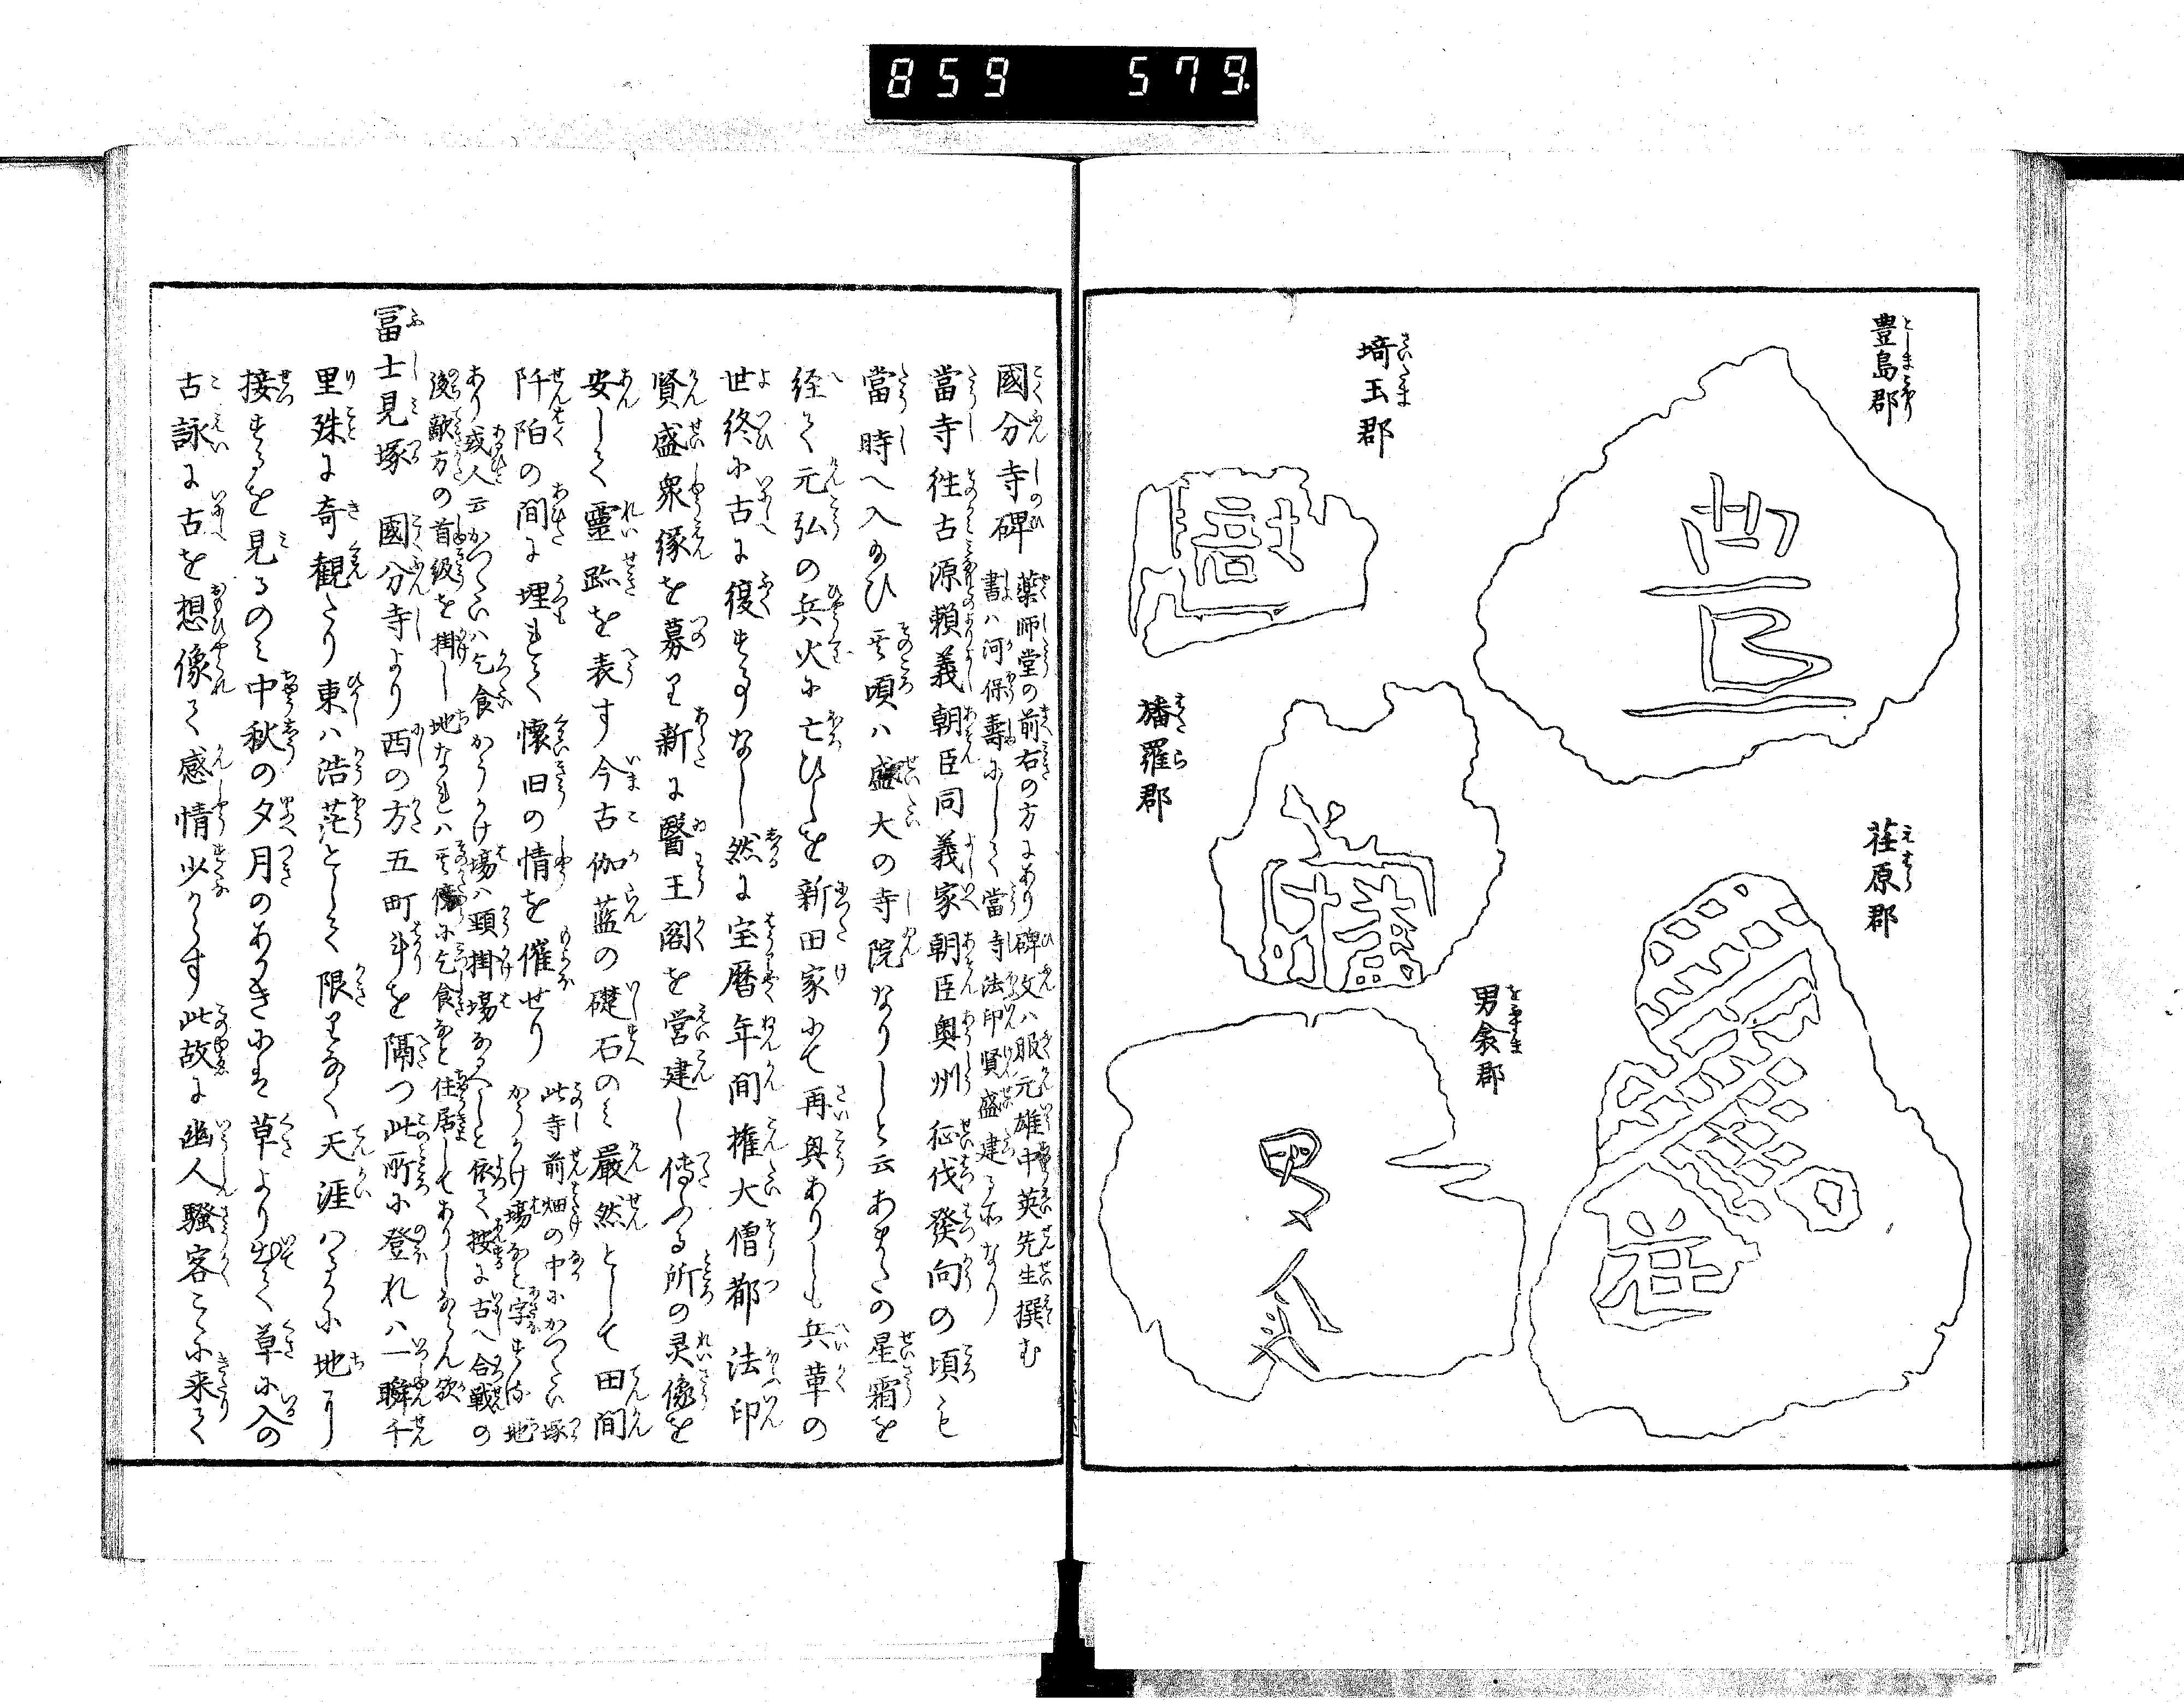 859 579
豊島郡
豊
埼玉郡
荏原郡
荏
旛羅郡
男衾郡
男
國分寺碑 薬師堂の前右の方にあり碑文ハ服元雄中英先生撰む
書ハ河保壽にして當寺法印賢盛建る所なり
當寺往古源頼義朝臣同義家朝臣奥州征伐發向の頃も
當時へ入給ひ其頃ハ盛大の寺院なりしと云あまたの星霜を
経て元弘の兵火に亡ひしを新田家にて再興ありしも兵革の
世終に古に復する事なし然に宝暦年間権大僧都法印
賢盛衆縁を募り新に醫王閣を営建し傳ふる所の灵像を
安して靈跡を表す今古伽藍の礎石のミ嚴然として田間
阡陌の間に埋もれて懐旧の情を催せり 此寺前畑の中にかつたい塚
かうかけ場なと字する地
あり或人云かつたいハ乞食かうかけ場ハ頸掛場なるへしと依て按に古へ合戰の
後敵方の首級を掛し地なれハ其傍に乞食なと住居してありしならん歟
冨士見塚 國分寺より西の方五町斗を隔つ此所に登れハ一瞬千
里殊に奇観たり東ハ浩茫として限りなく天涯はるかに地に
接するを見るのミ中秋の夕月のあかきにハ草より出て草に入の
古詠に古を想像て感情少からす此故に幽人騒客こゝに来て